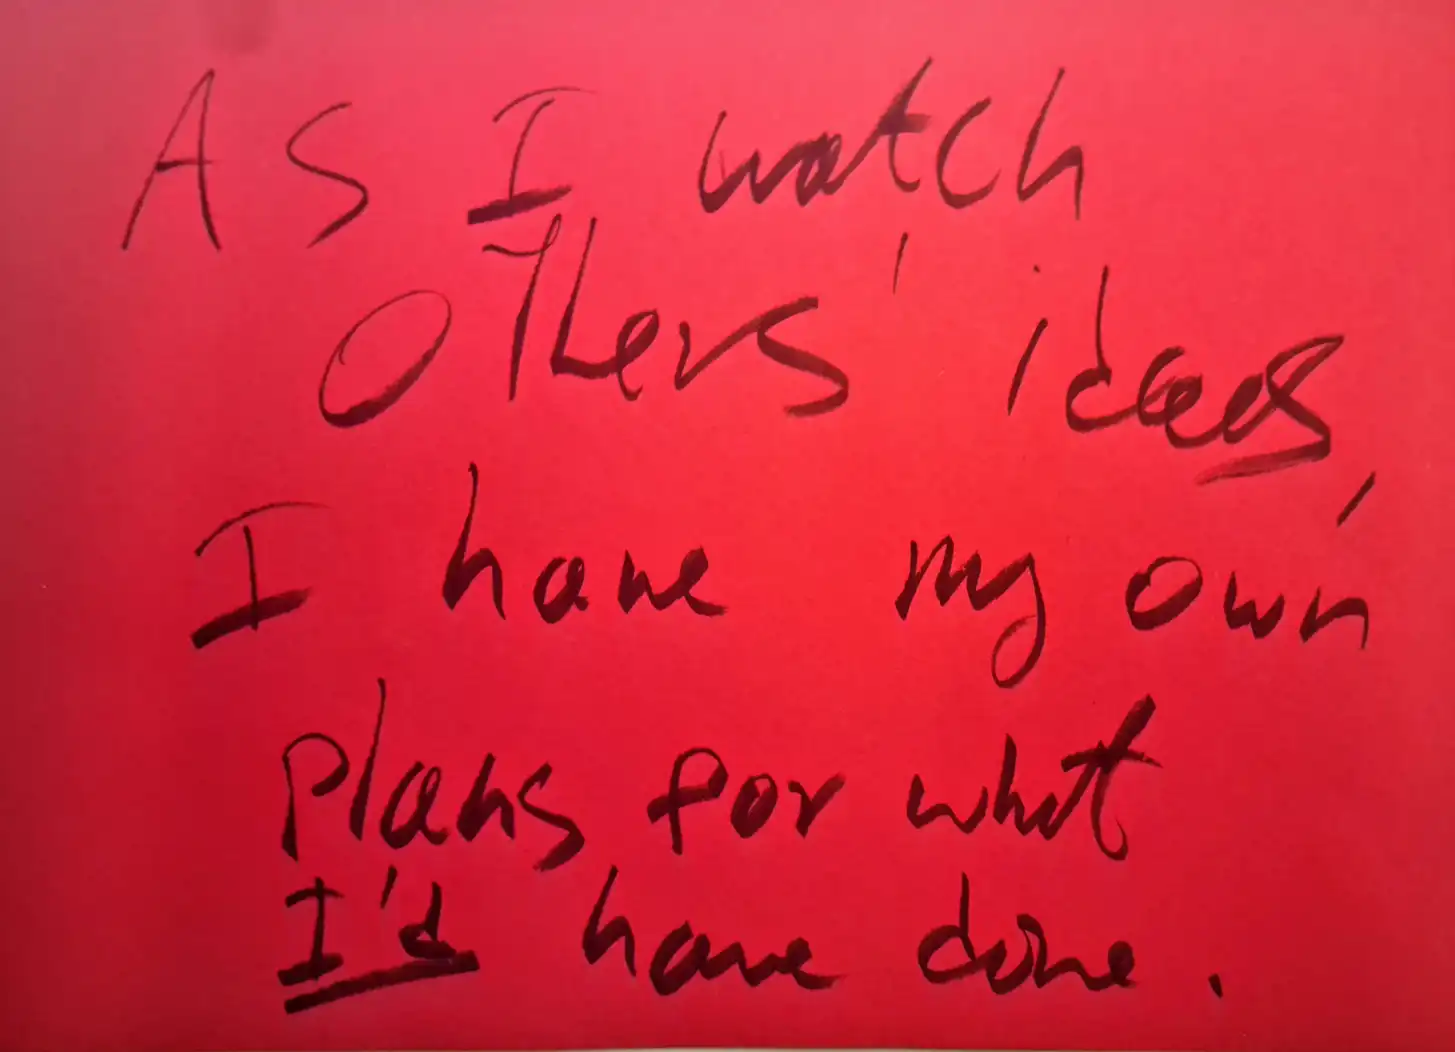 As I watch
Others' ideas,
I have my own
plans for what
I'd have done.